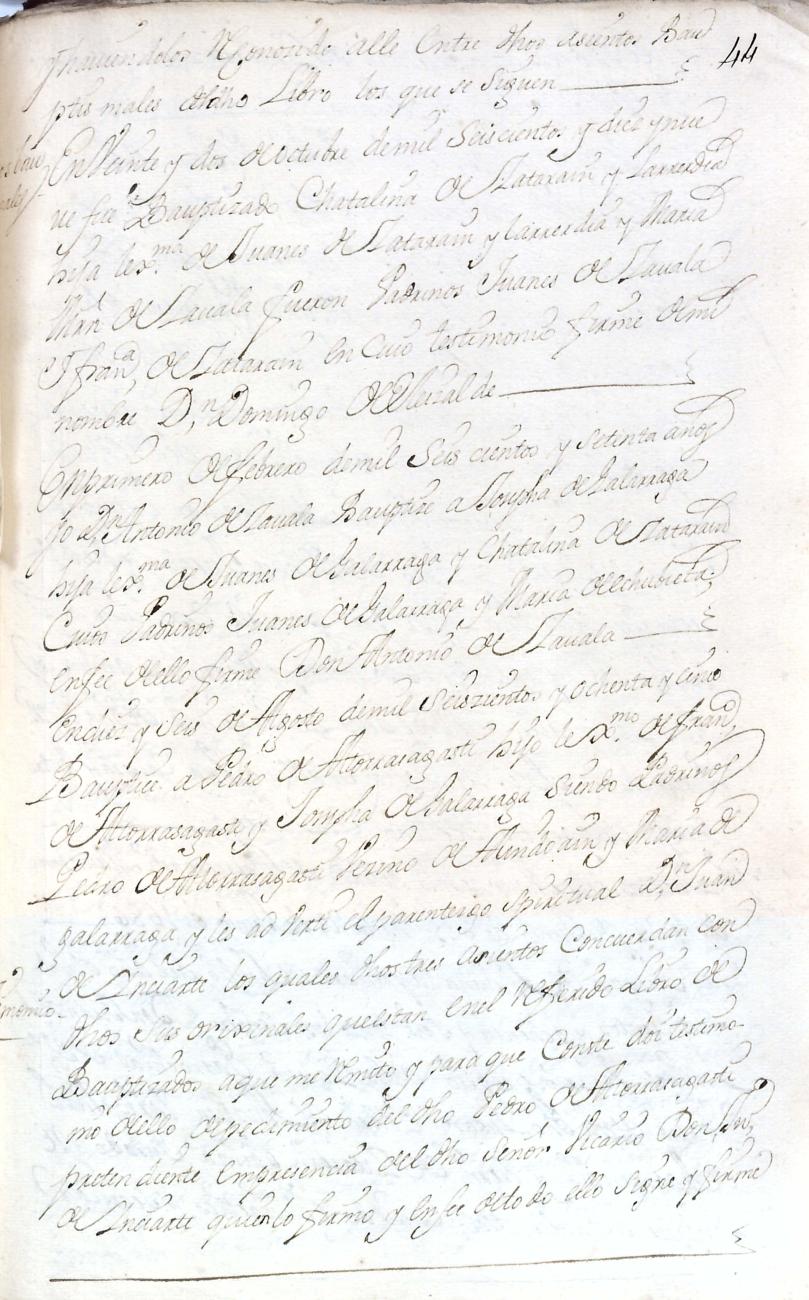 44
y haviendolos Reconocido alle Entre dhos asientos Bau
ptismales del dho Libro los que se siguen
En Veinte y dos de octubre de mil Seiscientos y diez y nue
ve fue Bauptizado Chatalina de Zatarain y Larrerdia
hija lexma. de Juanes de Zatarain y larrerdia y Maria
Mrn de Zavala fueron Padrinos Juanes de Zavala
y franca, de Zatarain en Cuio testimonio firme de mi
nombre Dn, Domingo de Elizalde
En primero de febrero de mil Seis cientos y setenta años
yo Dn Antonio de Zavala Bauptize a Josepha de Galarraga
hija lexma. de Juanes de Galarraga y Chatalina de Zatarain
Cuios Padrinos Juanes de Galarraga y Maria de
en fee de ello firme Don Antonio de Zavala
En diez y Seis de Agosto de mil Seiszientos y ochenta y cinco
Bauptize a Pedro de Alcorrasagasti hijo lexmo. de fran,
de Alcorrasagasti y Josepha de Galarraga Siendo Padrinos
Pedro de Alcorrasagasti Vezino de Alundoain y Maria de
galarraga y les ad verti el parentesgo spiritual Dn Juan
de Inciarte los quales dhos tres asientos Concuerdan con
dhos sus orixinales que estan en el Referido Libro de
Bauptizados a que me Remito y para que Conste doi testimo
nio de ello de pedimiento del dho Pedro de Alcorrasagasti
pretendiente en presencia del dho Señor Vicario Don Ju,
de Inciarte quien lo firmo y en fee de todo ello Signe y firme